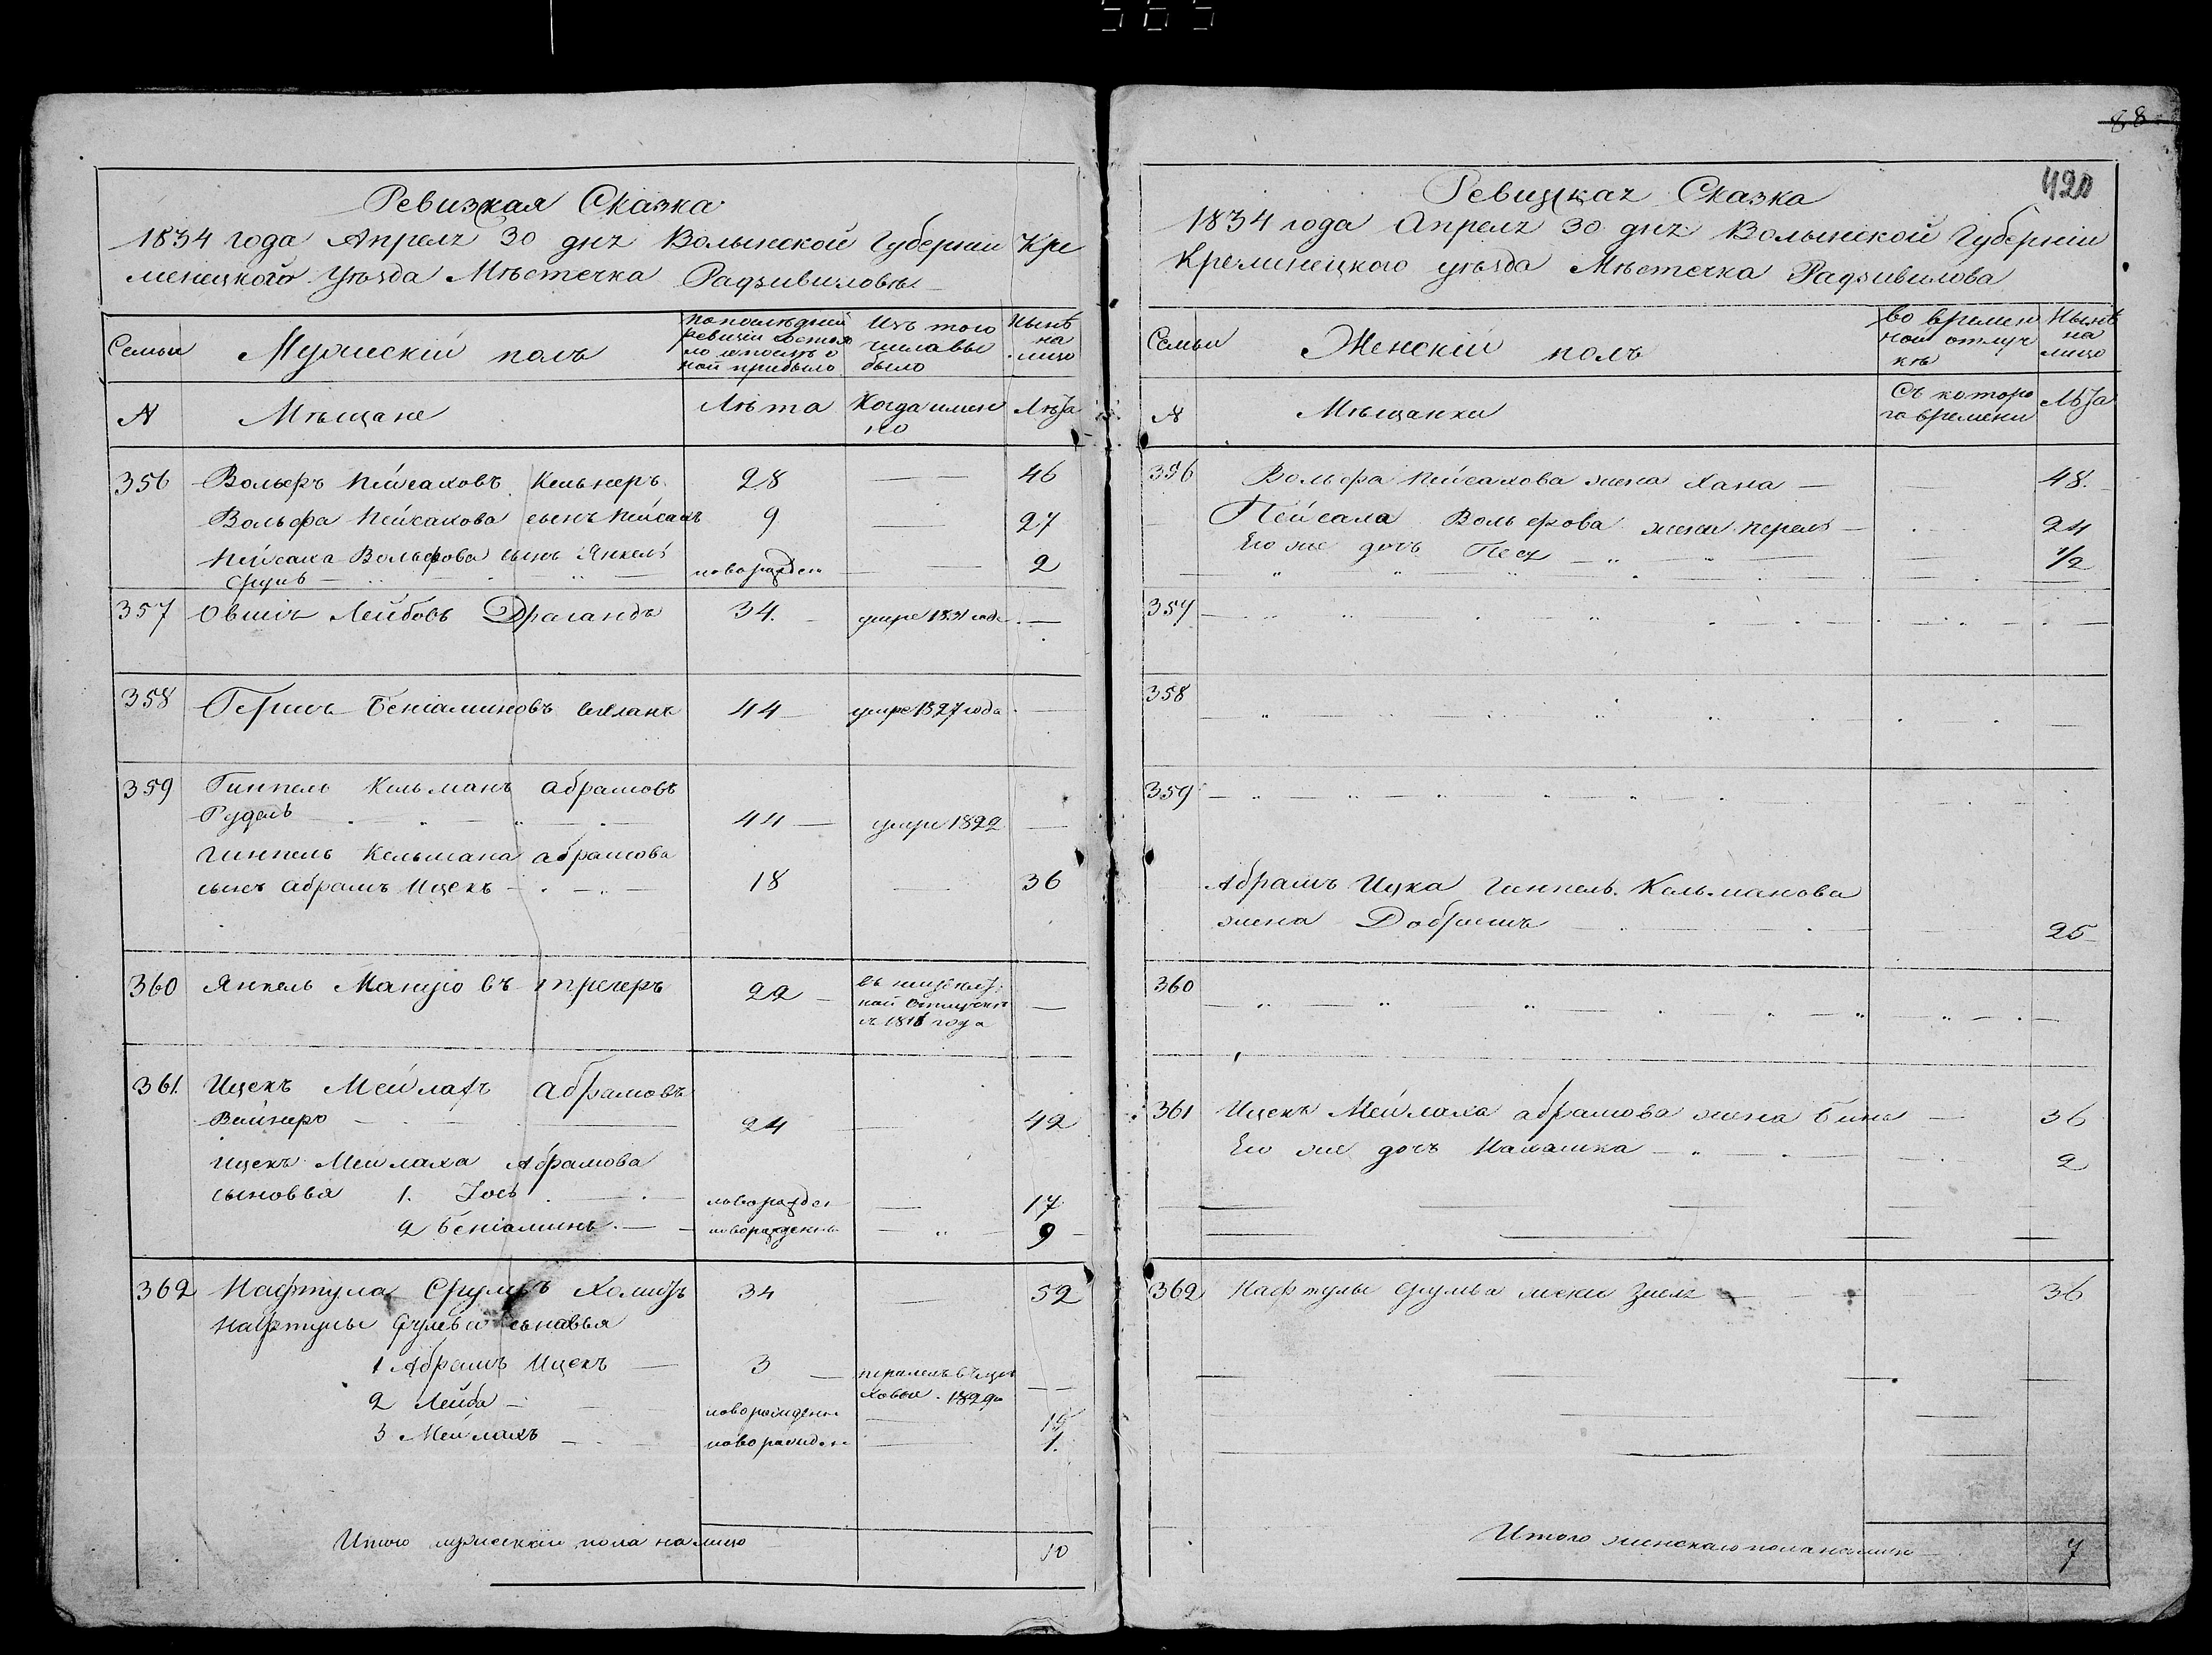 565
Ревизкая Сказка
1834 года Апреля 30 дня Волынской Губерніи Кре
менецкого Уѣзда Мѣстечка Радзивиловѣ
Семьи
Мужескій полъ
По послѣдней
ревизіи состоя
ло и послѣ о
ной прибыло
Изъ того
числа вы
было
Нынѣ
на
лицо
N
Мѣщане
Лѣта
Когда имен
но
Лѣта
356 Вольфъ Пейсаховъ Кельнеръ 28 — 46
Вольфа Пейсахова сынъ Пейсахъ 9 — 27
Пейсаха Вольфова сынъ Янкель
Сруль — новорожден — 2
357 Овшія Лейбовъ Драгандъ 34. умре 1831 года —
358 Гершъ Беніаминовъ 44 умре 1827 года —
359 Гимпель Кельманъ Абрамовъ
Рудель 44 — умре 1822 —
Гимпель Кельмана Абрамова
сынъ Абрамъ Ицекъ 18 — 36
360 Янкель Манусовъ Тречеръ 22 —
с 1818 года
361. Ицекъ Мейлахъ Абрамовъ
Вайнеръ 24 — 42
Ицекъ Мейлаха Абрамова
сыновья 1. Іось новорожден — 17
2 Беніаминъ новорожденны — 9
362 Нафтула Срулевъ 34 — 52
Нафтулы Срулева сыновья
1 Абрамъ Ицекъ — 3 —
1829го
2 Лейба — новорожденн — 15
3 Мейлахъ — новорожден — 1.
Итого мужескаго пола на лицо 10
88
420
Ревизская Сказка
1834 года Апреля 30 дня Волынской Губерніи
Кременецкого уѣзда Мѣстечка Радзивилова
Семьи
Женскій полъ
во времен
ной отлуч
кѣ
Нынѣ
на
лицо
N
Мѣщанки
Съ которо
го времени
Лѣта
356 Вольфа Пейсахова жена Хана — 48.
Пейсаха Вольфова жена Перель — 24
Его же дочъ Песя — 1/2
357
358
359
Абрамъ Ицка Гимпель Кельманова
жена Добрышъ 25
360
361 Ицекъ Мейлаха Абрамова жена Бина — 36
Его же дочъ Малашка — 2
362 Нафтулы Срулева жена Зиеля 36
Итого женскаго пола на лицо 7